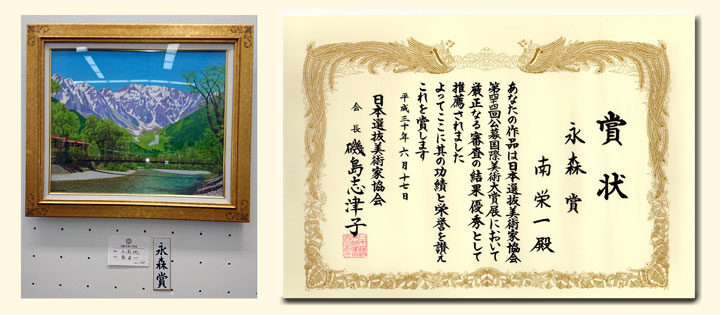 賞状
永森賞
南栄一殿
あなたの作品は日本選抜美術家協会
第四回公募国際美術大賞展において
厳正なる審査の結果優秀として
推薦されました
よってここに其の功績と栄誉を讃え
これを賞します
平成三十年六月十七日
日本選抜美術家協会
会長 磯島志津子
永森賞